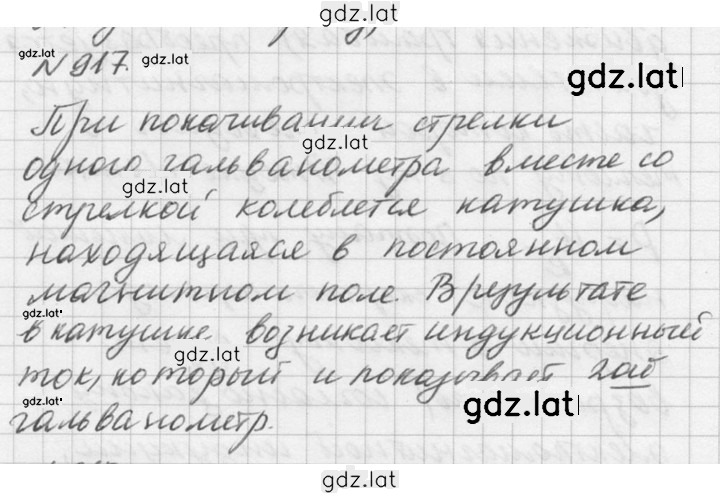 gdz.lat
№917.
gdz.lat
gdz.lat
При покачивании стрелки
gdz.lat
одного гальванометра вместе со
gdz.lat
стрелкой колеблется катушка,
находящаяся в постоянном
магнитном поле. В результате
gdz.lat
в катушке возникает индукционный
gdz.lat
ток, который и показывает 2ой
gdz.lat
gdz.lat
гальванометр.
gdz.lat